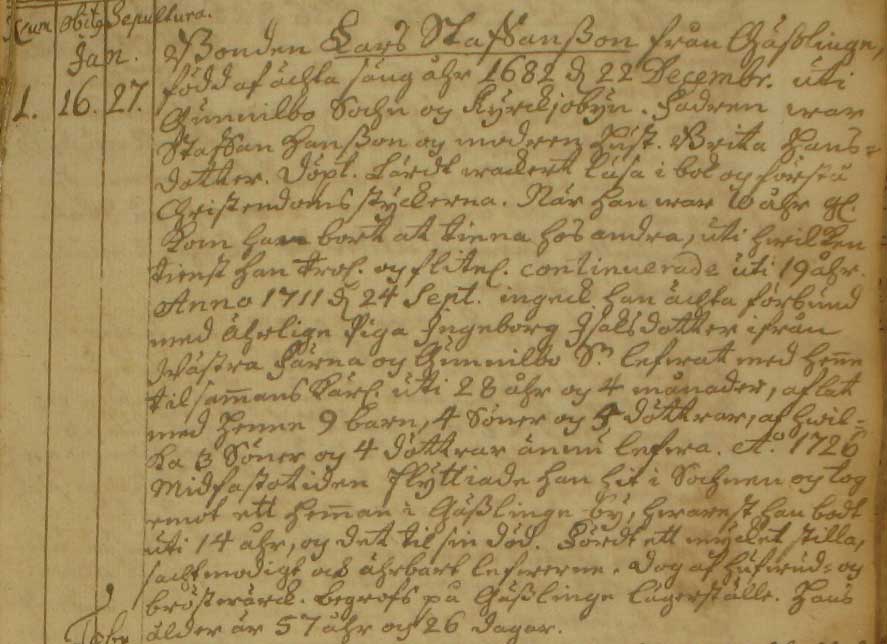 Num Obitus Sepultura.
Jan.
1. 16. 27.
Bonden Lars Staffansson från Gässlinge,
född af ächta säng åhr 1682 d 22 Decembr. uti
Gunnilbo Sochn og Kyrckjobyn. Fadren war
Staffan Hansson og modren Hust. Brita Hans=
dotter. Döpt. Lärdt wackert läsa i bok og första
Christendoms styckerna. När han war 10 åhr gl.
kom han bort at tiena hos andra, uti hwilken
tienst han trol. og flitel. continuerade uti 19 åhr.
Anno 1711 d 24 Sept. ingeck han ächta förbund
med ährlige Piga Ingeborg Isaksdotter ifrån
Wästra Färna og Gunnilbo Sn. lefwat med henne
til sammans kärl. uti 28 åhr og 4 månader, aflat
med henne 9 barn, 4 Söner og 5 döttrar, af hwil=
ka 3 Söner og 4 döttrar ännu lefwa. Ao. 1726
Midfastotiden flyttiade han hit i Sochnen og tog
emot ett hemman i Gässlinge by, hwarest han bodt
uti 14 åhr, og det til sin död. Fördt ett mycket stilla,
sachtmodigt och ährbart lefwerne. Dog af hufwud= og
bröstwärck. Begrofs på Gässlinge lägerställe. Hans
ålder är 57 åhr och 26 dagar.